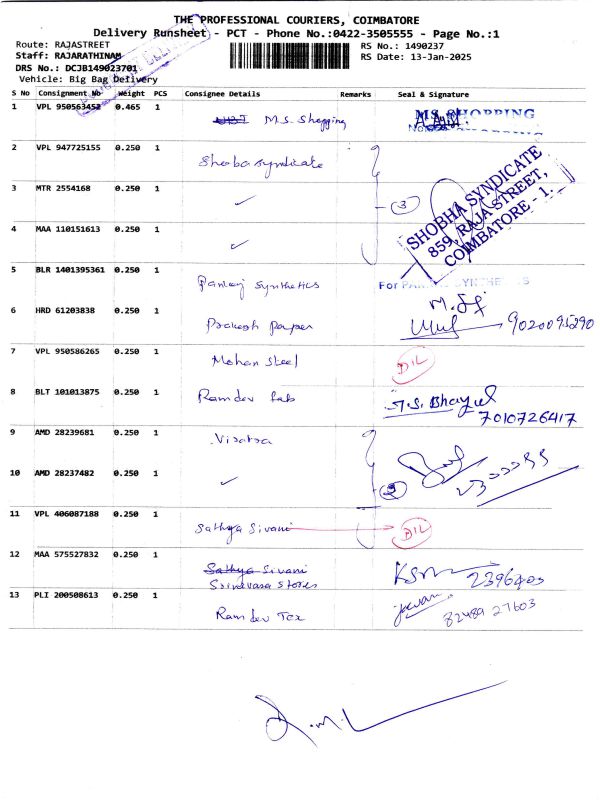 THE PROFESSIONAL COURIERS, COIMBATORE
Delivery Runsheet - PCT - Phone No.:0422-3505555 - Page No.:1
Route: RAJASTREET RS No.: 1490237
Staff: RAJARATHINAM RS Date: 13-Jan-2025
DRS No.: DCJB149023701
Vehicle: Big Bag Delivery
S No Consignment No Weight PCS Consignee Details Remarks Seal & Signature
1 VPL 950563452 0.465 1 M.S. Shopping MS SHOPPING
2 VPL 947725155 0.250 1 Shoba Syndicate
3 MTR 2554168 0.250 1 ✓ 3 SHOBHA SYNDICATE
859, RAJA STREET,
COIMBATORE - 1.
4 MAA 110151613 0.250 1 ✓
5 BLR 1401395361 0.250 1 Pankaj Synthetics For
6 HRD 61203838 0.250 1 Prakash paper 9020095290
7 VPL 950586265 0.250 1 Mohan Steel D/L
8 BLT 101013875 0.250 1 Ramdev fab S. Bhayal
7010726417
9 AMD 28239681 0.250 1
10 AMD 28237482 0.250 1 ✓ 2
11 VPL 406087188 0.250 1 Sathya Sivani D/L
12 MAA 575527832 0.250 1 Sathya Sivani
Srinivasa Stores
13 PLI 200508613 0.250 1 Ramdev Tex 82489 27603